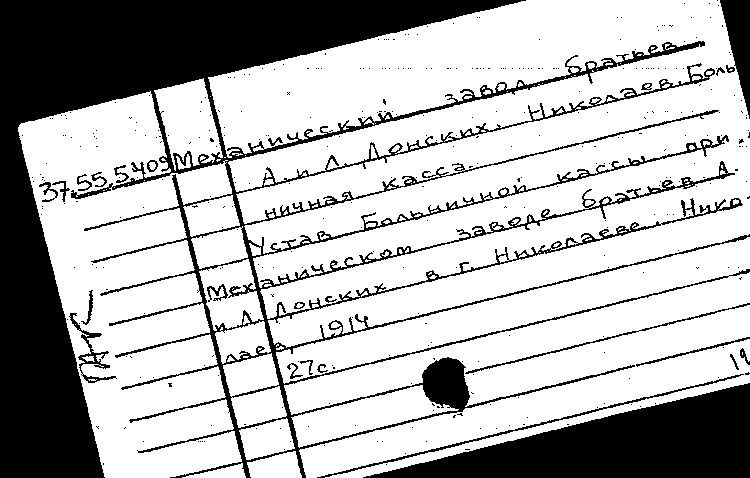 37.55.5.409 Механический завод братьев
А. и Л. Донских. Николаев. Боль
ничная касса.
Устав Больничной кассы при
Механическом заводе братьев А.
и Л. Донских в г. Николаеве. Нико-
лаев, 1914
27с.